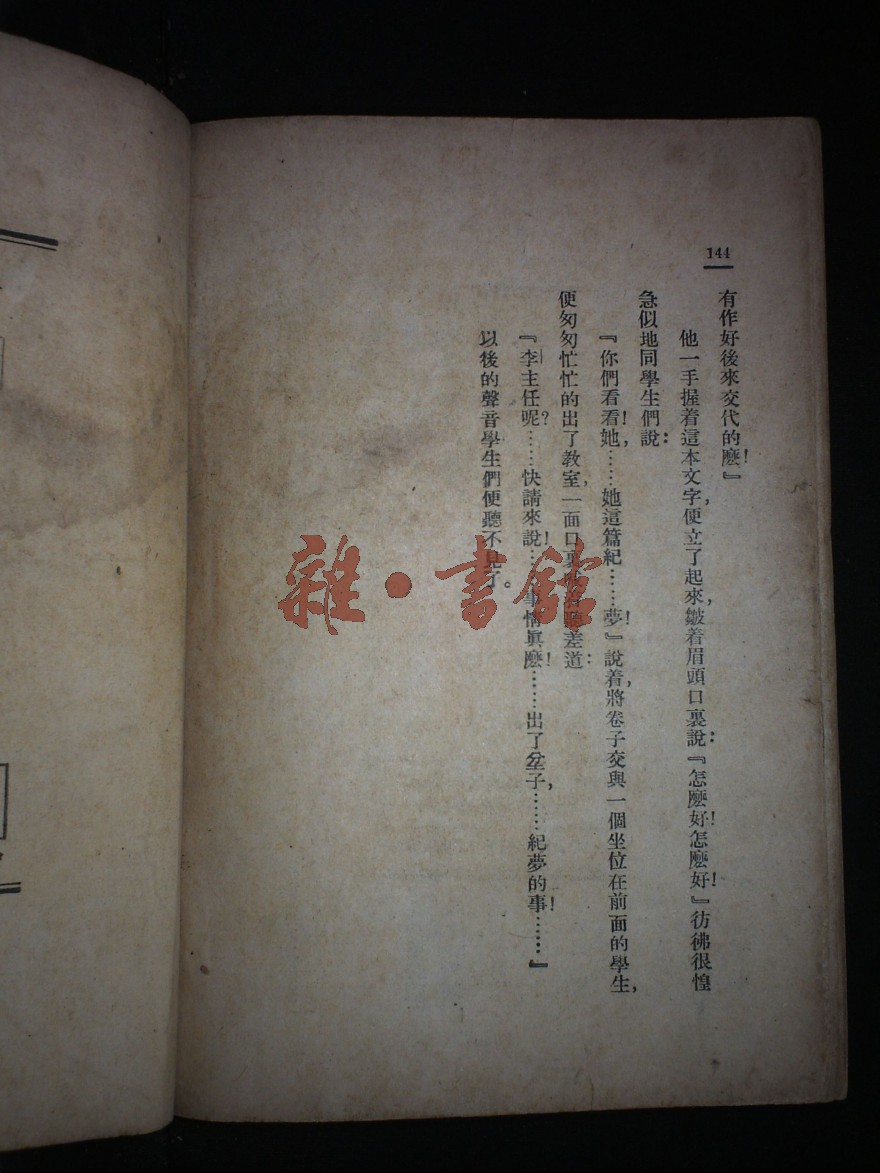 144
有作好後來交代的麽!』
他一手握着這本文字,便立了起來,皺着眉頭口裏說:『怎麽好!怎麽好!』彷彿很惶
急似地同學生們說:
『你們看看!她,……她這篇紀……夢!』說着,將卷子交與一個坐位在前面的學生,
便匆匆忙忙的出了教室,一面口裏差道:
『李主任呢?……快請來說!…事情眞麽!……出了岔子,……紀夢的事!……』
以後的聲音學生們便聽不見了。
雜·書館